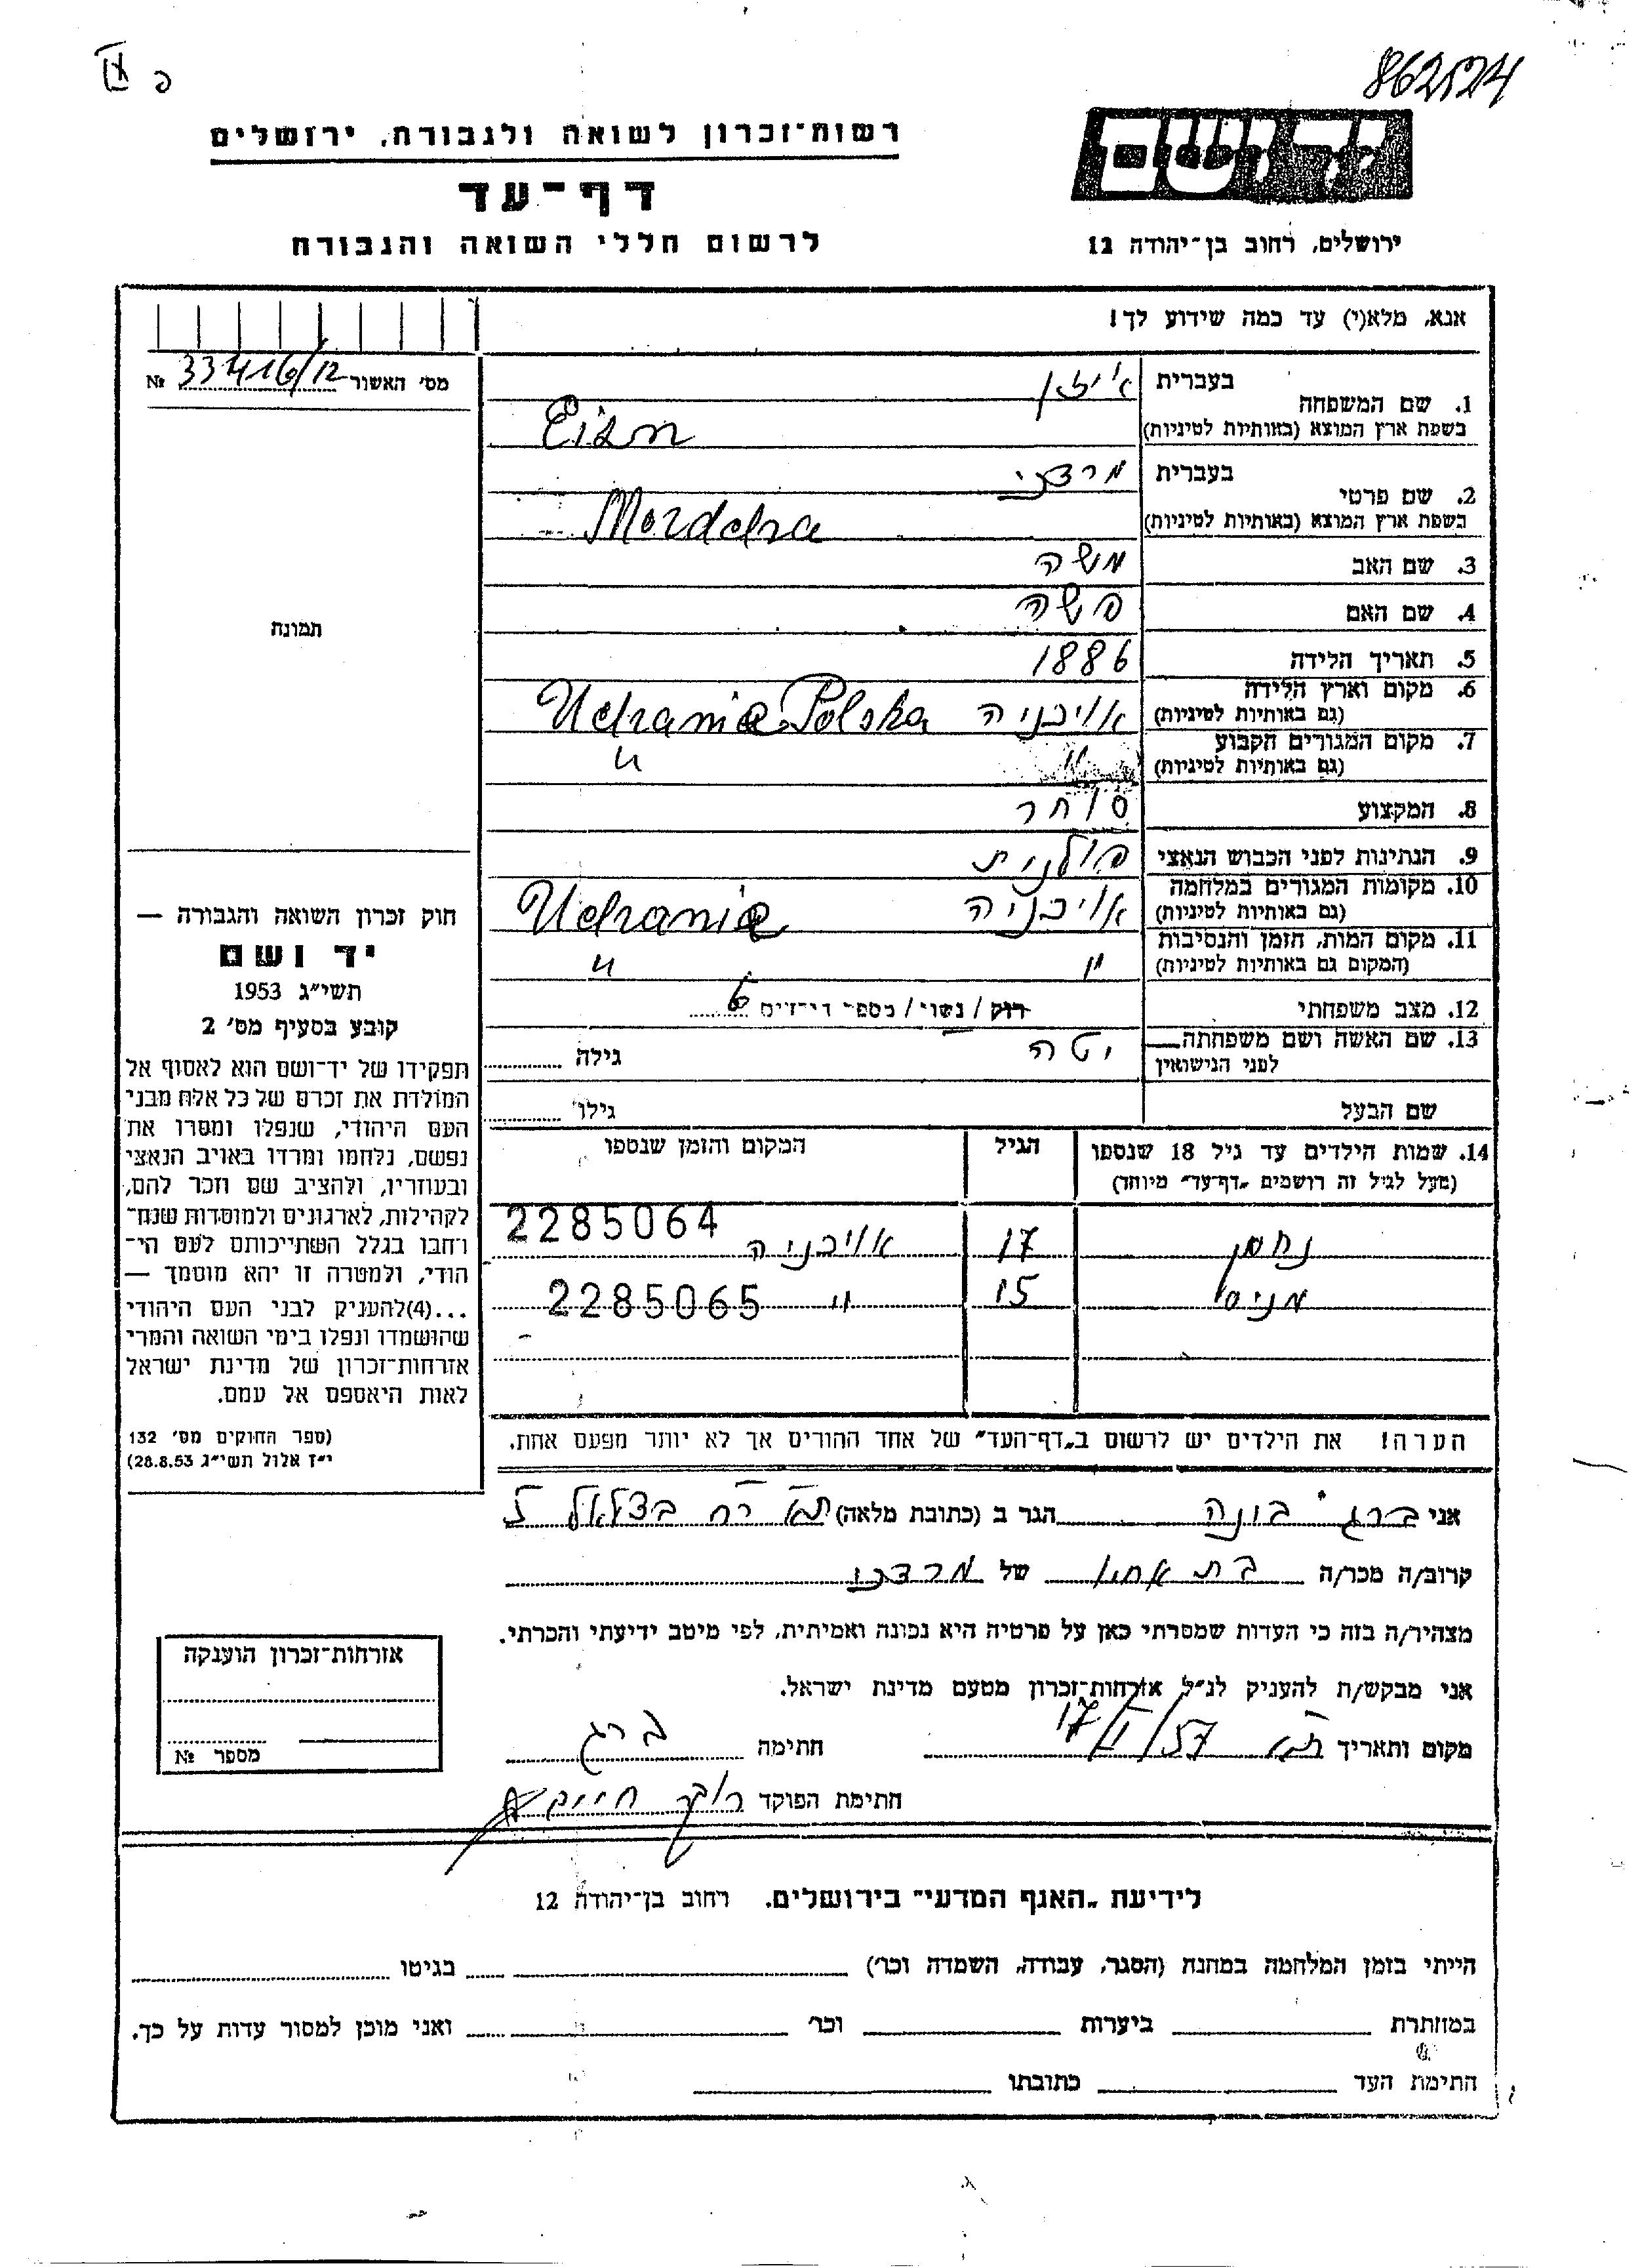 862524
רשות־זכרון לשואה ולגבורה, ירושלים
דף־עד
לרשום חללי השואה והגבורה
יד ושם
ירושלים, רחוב בן־יהודה 12
אנא, מלא(י) עד כמה שידוע לך!
מס׳ האשור № 33416/12
1. שם המשפחה בעברית אייזן
בשפת ארץ המוצא (באותיות לטיניות) Eizn
2. שם פרטי בעברית מרדכי
בשפת ארץ המוצא (באותיות לטיניות) Mordcha
3. שם האב משה
4. שם האם פשה
5. תאריך הלידה 1886
6. מקום וארץ הלידה (גם באותיות לטיניות) אויכניה Uchanie Polska
7. מקום המגורים הקבוע (גם באותיות לטיניות) " "
8. המקצוע סוחר
9. הנתינות לפני הכבוש הנאצי פולנית
10. מקומות המגורים במלחמה (גם באותיות לטיניות) אויכניה Uchanie
11. מקום המות, הזמן והנסיבות (המקום גם באותיות לטיניות) " "
12. מצב משפחתי רוק / נשוי / מספר הילדים 6
13. שם האשה ושם משפחתה לפני הנישואין יטה גילה
שם הבעל גילו
14. שמות הילדים עד גיל 18 שנספו (מעל לגיל זה רושמים „דף־עד״ מיוחד) הגיל המקום והזמן שנספו
נחמן 17 אויכניה 2285064
מניס 15 " 2285065
הערה! את הילדים יש לרשום ב„דף־העד״ של אחד ההורים אך לא יותר מפעם אחת.
תמונה
חוק זכרון השואה והגבורה —
יד ושם
תשי״ג 1953
קובע בסעיף מס׳ 2
תפקידו של יד־ושם הוא לאסוף אל
המולדת את זכרם של כל אלה מבני
העם היהודי, שנפלו ומסרו את
נפשם, נלחמו ומרדו באויב הנאצי
ובעוזריו, ולהציב שם וזכר להם,
לקהילות, לארגונים ולמוסדות שנח־
רחבו בגלל השתייכותם לעם הי־
הודי, ולמטרה זו יהא מוסמך —
...(4)להעניק לבני העם היהודי
שהושמדו ונפלו בימי השואה והמרי
אזרחות־זכרון של מדינת ישראל
לאות היאספם אל עמם.
(ספר החוקים מס׳ 132
י״ז אלול תשי״ג 28.8.53)
אני ברג בונה הגר ב (כתובת מלאה) תא רח בצלאל 5
קרוב/ה מכר/ה בת אחיו של מרדכי
מצהיר/ה בזה כי העדות שמסרתי כאן על פרטיה היא נכונה ואמיתית, לפי מיטב ידיעתי והכרתי.
אני מבקש/ת להעניק לנ״ל אזרחות־זכרון מטעם מדינת ישראל.
מקום ותאריך תא 17/I/57 חתימה ברג
חתימת הפוקד
אזרחות־זכרון הוענקה
מספר №
לידיעת „האגף המדעי״ בירושלים, רחוב בן־יהודה 12
הייתי בזמן המלחמה במחנה (הסגר, עבודה, השמדה וכו׳) בגיטו
במחתרת ביערות וכו׳ ואני מוכן למסור עדות על כך.
חתימת העד כתובתו